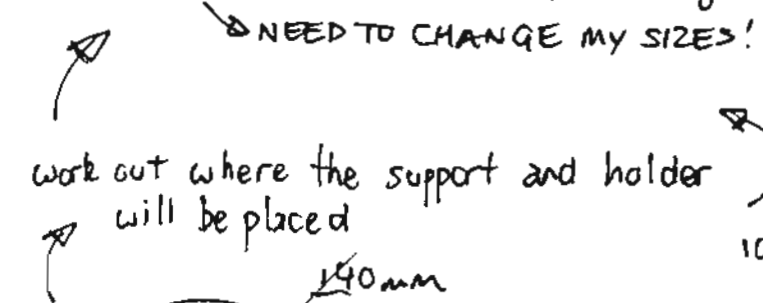 NEED TO CHANGE MY SIZES!
work out where the support and holder
will be placed
140mm
10